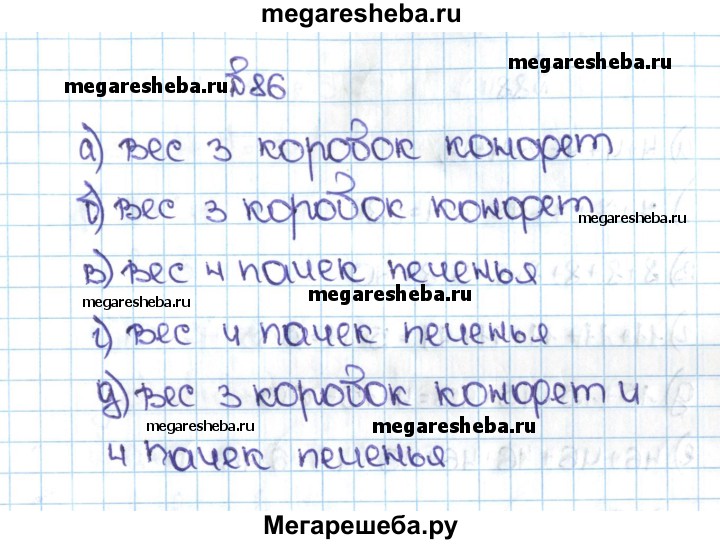 megaresheba.ru
№86
megaresheba.ru
megaresheba.ru
а) вес 3 коробок конфет
б) вес 3 коробок конфет
megaresheba.ru
в) вес 4 пачек печенья
megaresheba.ru
megaresheba.ru
г) вес 4 пачек печенья
д) вес 3 коробок конфет и
megaresheba.ru
megaresheba.ru
4 пачек печенья
Мегарешеба.ру